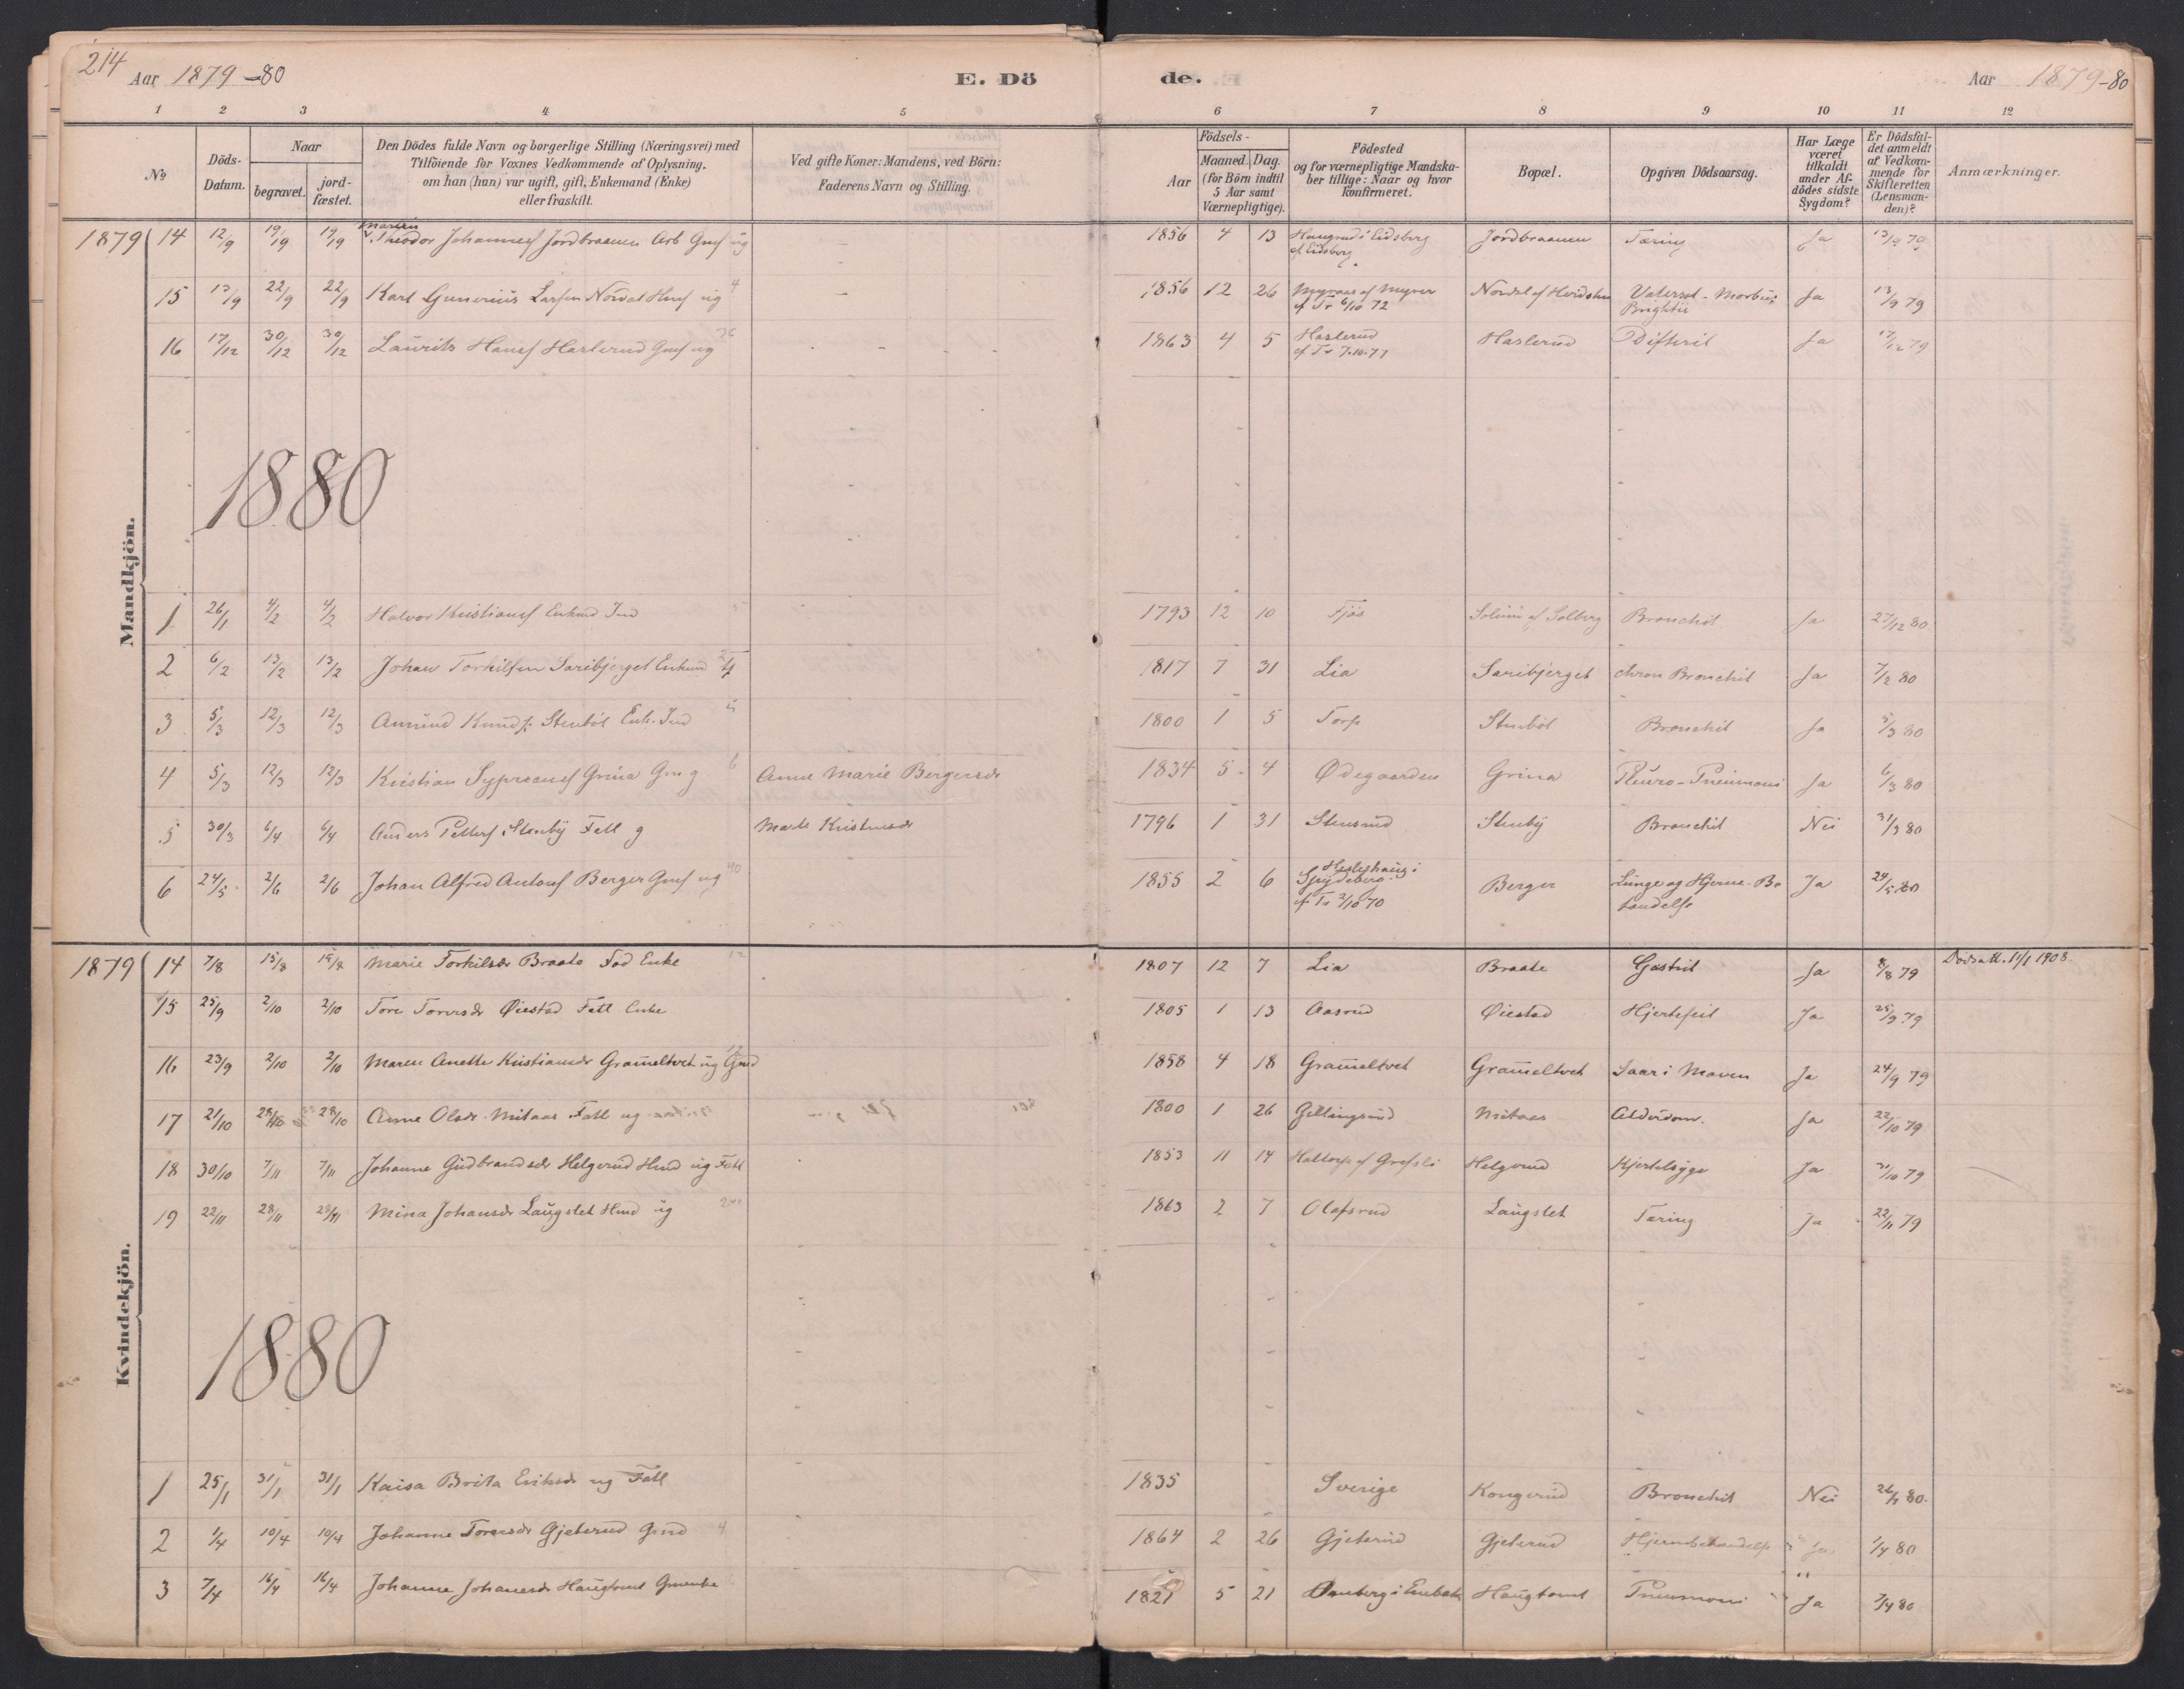 214
Aar 1879-80
E. Dö
de.
Aar 1879-80
1 2 3 4 5 6 7 8 9 10 11 12
No
Döds-Datum.
Naar
begravet.
jordfæstet.
Den Dödes fulde Navn og borgerlige Stilling (Næringsvei) med
Tilföiende for Voxnes Vedkommende af Oplysning.
om han (hun) var ugift, gift, Enkemand (Enke)
eller fraskilt.
Ved gifte Koner: Mandens, ved Börn:
Faderens Navn og Stilling.
Födsels-
Aar
Maaned. Dag.
(for Börn indtil
5 Aar samt
Værnepligtige).
Födested
og for værnepligtige Mandska-
ber tillige: Naar og hvor
konfirmeret.
Bopæl.
Opgiven Dödsaarsag.
Har Læge
været
tilkaldt
under Af-
dödes sidste
Sygdom?
Er Dödsfal-
det anmeldt
af Vedkom-
mende for
Skifteretten
(Lensman-
den)?
Anmærkninger.
Mandkjön.
1879 14 12/9 19/9 19/9 Theodor Johannesf Jordbraanen Arb ug 1856 4 13 i Eidsberg Jordbraanen Tæring Ja 13/9 79
15 13/9 22/9 22/9 Karl Gunerius Larsen Nordal ug 1856 12 26 af Myrer 6/10 72 Nordal af Morbus Brightii Ja 13/9 79
16 17/12 30/12 30/12 Laurits Hansf Haslerud Gmsf ug 1863 4 5 Haslerud 7.10.77 Haslerud Difterit Ja 17/12 79
1880
1 26/1 4/2 4/2 Halvor Kristiansf Enkmd Ind 1793 12 10 Fjös af Solberg Bronchit Ja 27/12 80
2 6/2 13/2 13/2 Johan Torkilsen Saribjerget Enkmd 1817 7 31 Lia Saribjerget chron Bronchit Ja 7/2 80
3 5/3 12/3 12/3 Amund Knudsf. Stenböl Enk. Ind 1800 1 5 Torp Stenböl Bronchit Ja 5/3 80
4 5/3 12/3 12/3 Kristian Grina Gm g Anne Marie Bergersdr 1834 5 4 Ødegaarden Grina Pleuro-Pneumoni Ja 6/3 80
5 30/3 6/4 6/4 Anders Pettersf Stenby Fatl g Marte Kristensdr 1796 1 31 Stensrud Stenby Bronchit Nei 31/3 80
6 24/5 2/6 2/6 Johan Alfred Antonsf Berger Gmsf ug 1855 2 6 i Spydeberg 2/10 70 Berger Lunge og Hjerne-Betændelse Ja 24/5 80
Kvindekjön.
1879 14 7/8 15/8 15/8 Marie Torkilsdr Braate Fød Enke 1807 12 7 Lia Braate Gastrit Ja 8/8 79 Dødsatt. 11/1 1908.
15 25/9 2/10 2/10 Tore Toresdr Øiestad Fatl Enke 1805 1 13 Aasrud Øiestad Hjertefeil Ja 25/9 79
16 23/9 2/10 2/10 Maren Anette Kristiansdr Grameltvet ug Gmd 1858 4 18 Grameltvet Grameltvet Saar i Maven Ja 24/9 79
17 21/10 28/10 28/10 Anne Olsdr Mitaas Fatl ug 1800 1 26 Gillingsrud Mitaas Alderdom. Ja 22/10 79
18 30/10 7/11 7/11 Johanne Gudbrandsdr Helgerud Hmd ug Fatl 1853 11 14 Haltorp af Grefsli Helgerud Hjertesyge Ja 31/10 79
19 22/11 28/11 28/11 Mina Johansdr Laugslet Hmd ug 1863 2 7 Olafsrud Laugslet Tæring Ja 22/11 79
1880
1 25/1 31/1 31/1 Kaisa Brita Eriksdr ug Fatl 1835 Sverige Kongerud Bronchit Nei 26/1 80.
2 1/4 10/4 10/4 Johanne Toresdr Gjeterud Gmd 1864 2 26 Gjeterud Gjeterud Hjernebetændelse Ja 1/4 80
3 7/4 16/4 16/4 Johanne Johanesdr Haugtomt Gmenke 1821 5 21 i Enebak Haugtomt Pneumoni Ja 7/4 80